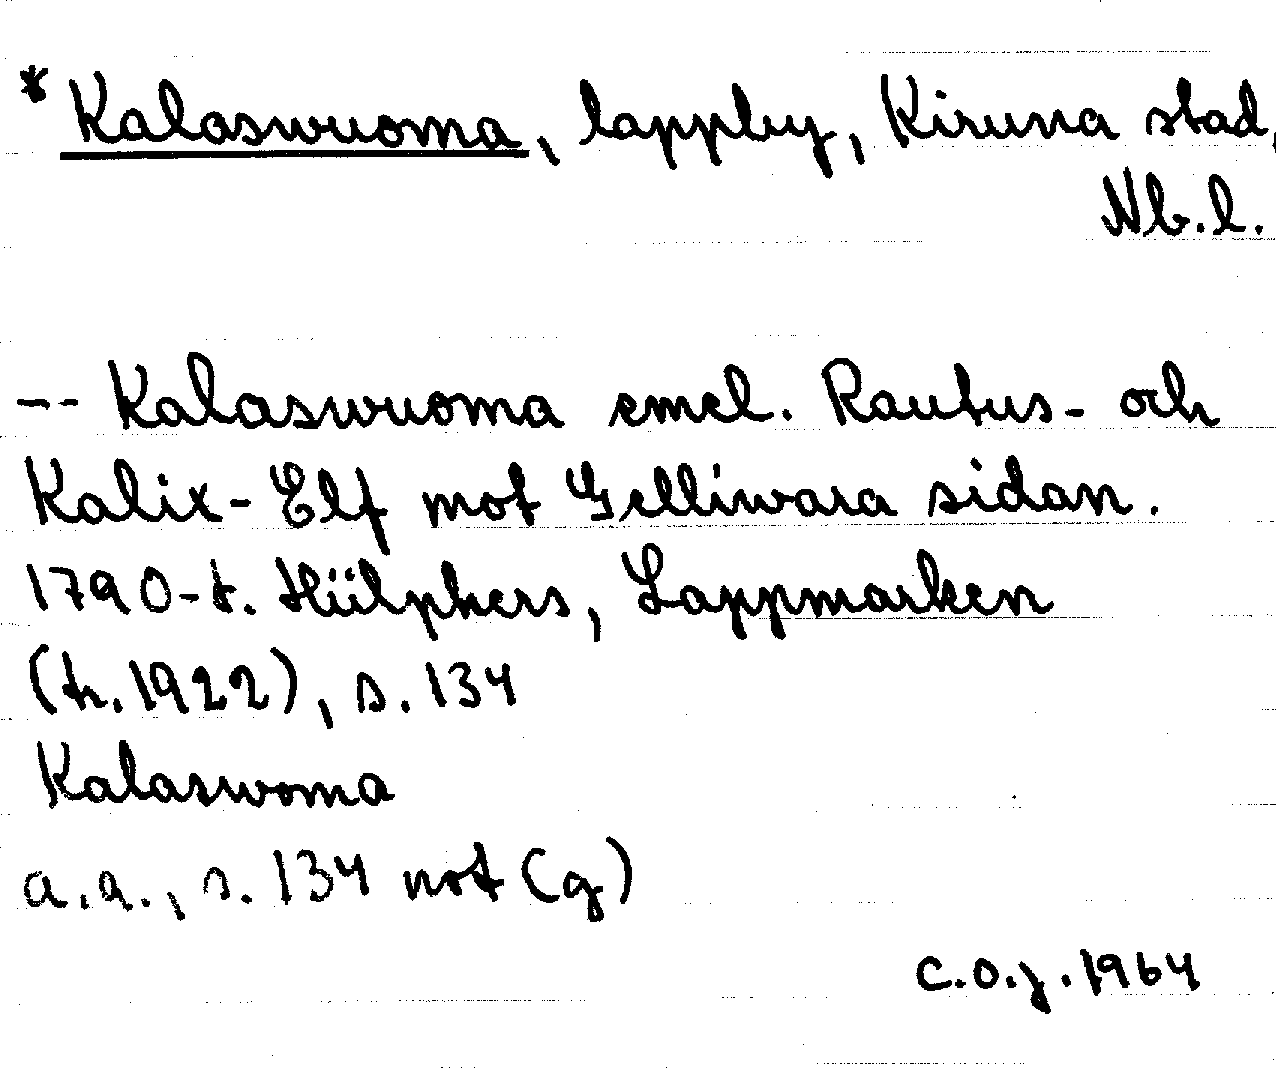 * Kalaswuoma, lappby, Kiruna stad,
Nb.l.
-- Kalaswuoma emel. Rautus- och
Kalix-Elf mot Gelliwara sidan.
1790-t. Hülphers, Lappmarken
(tr. 1922), s. 134
Kalaswoma
a.a., s. 134 not (g)
C.O.J. 1964